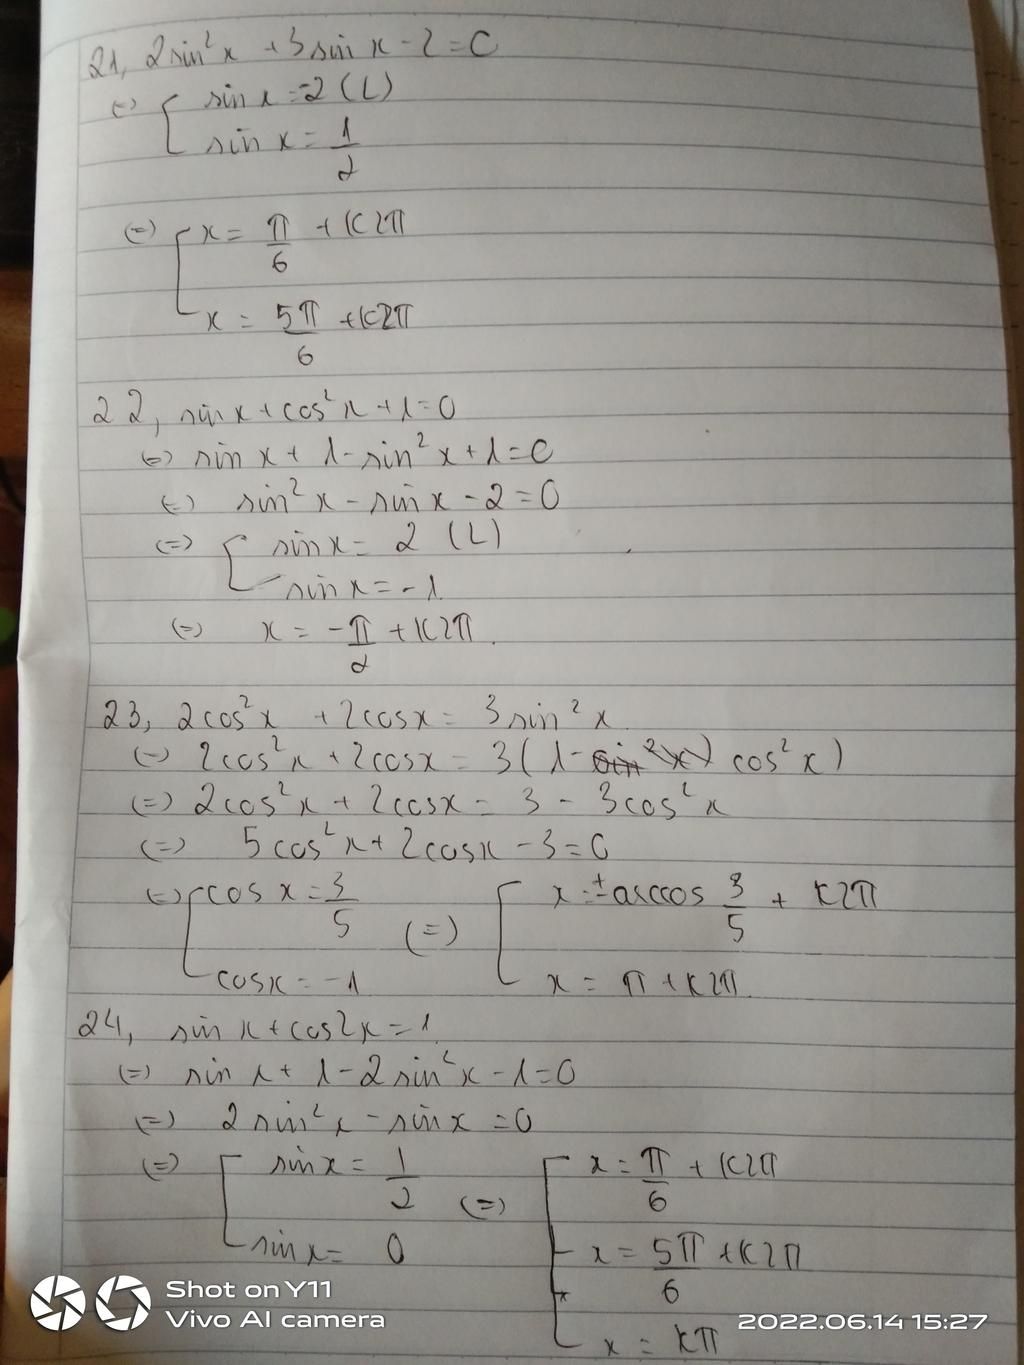 21, 2sin²x + 3sinx - 2 = 0
(=) [ sinx = -2 (L)
sinx = 1/2
(=) [ x = π/6 + k2π
x = 5π/6 + k2π
22, sinx + cos²x + 1 = 0
(=) sinx + 1 - sin²x + 1 = 0
(=) sin²x - sinx - 2 = 0
(=) [ sinx = 2 (L)
sinx = -1
(=) x = -π/2 + k2π.
23, 2cos²x + 2cosx = 3sin²x
(=) 2cos²x + 2cosx = 3(1 - cos²x)
(=) 2cos²x + 2cosx = 3 - 3cos²x
(=) 5cos²x + 2cosx - 3 = 0
(=) [ cosx = 3/5 (=) [ x = ±arccos 3/5 + k2π
cosx = -1 x = π + k2π.
24, sinx + cos2x = 1
(=) sinx + 1 - 2sin²x - 1 = 0
(=) 2sin²x - sinx = 0
(=) [ sinx = 1/2 (=) [ x = π/6 + k2π
sinx = 0 x = 5π/6 + k2π
x = kπ
Shot on Y11
Vivo AI camera
2022.06.14 15:27